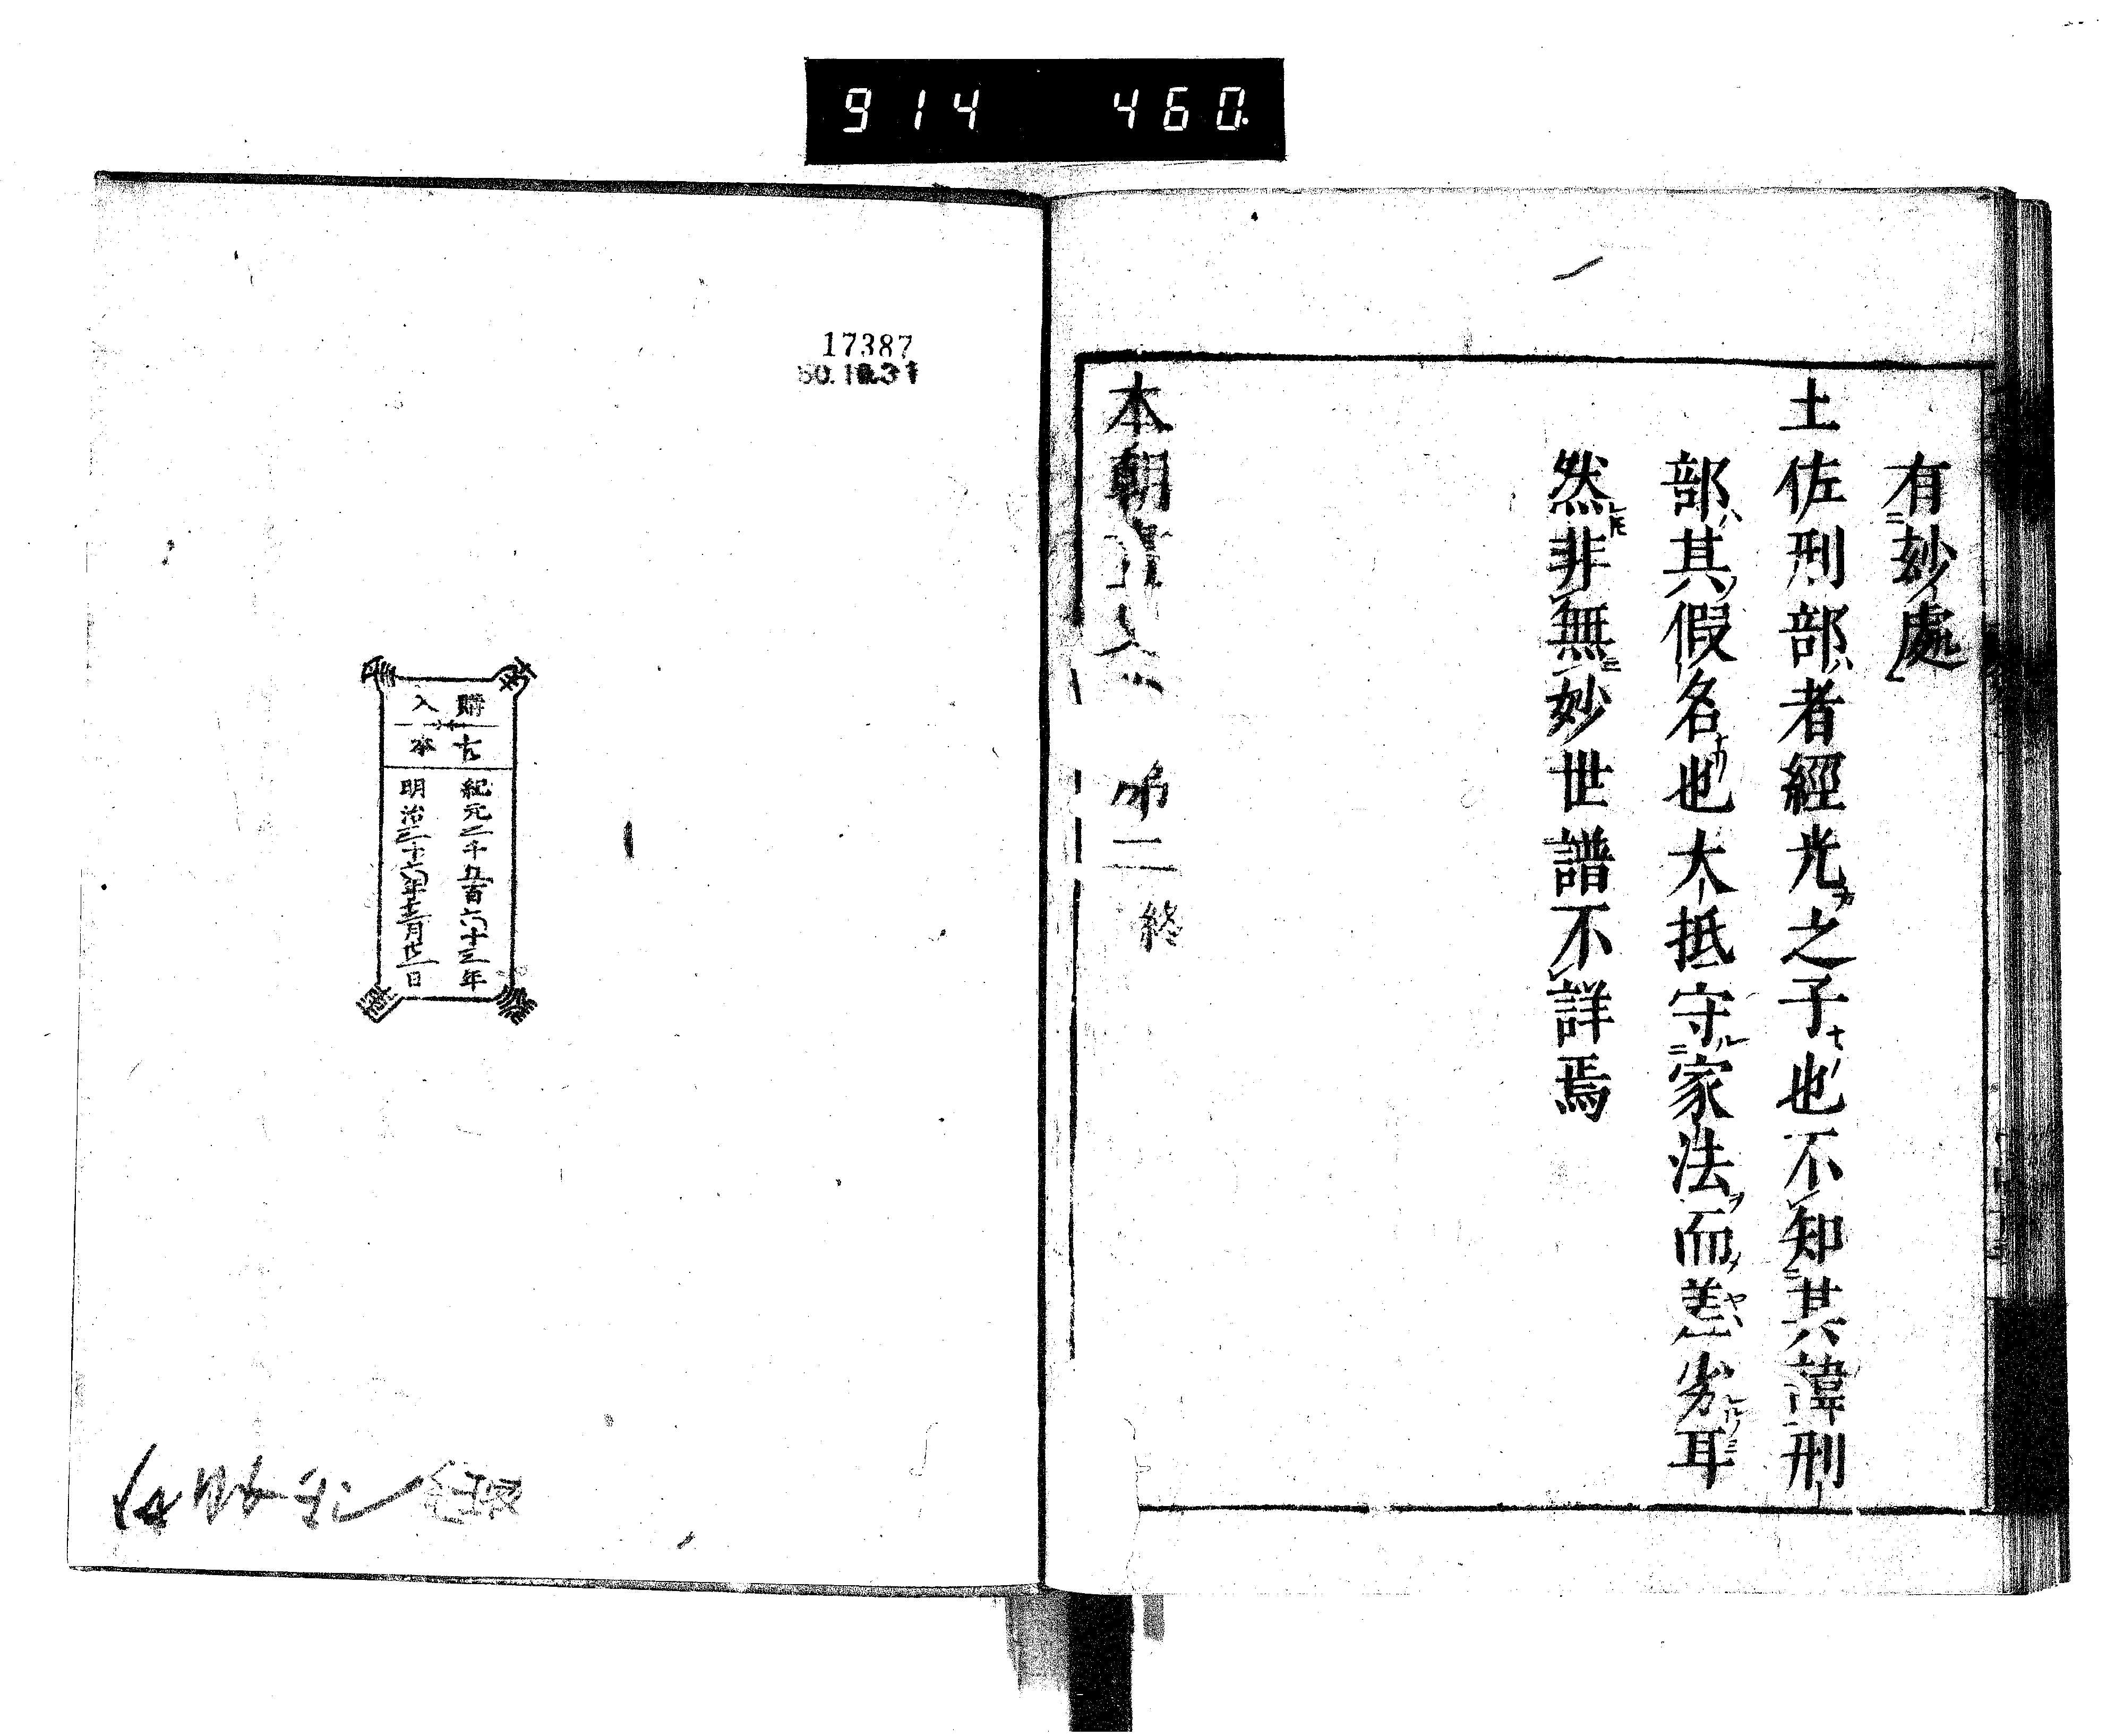 914 460.
有妙處
土佐刑部者經光之子也不知其諱刑
部其假名也大抵守家法而差劣耳
然非無妙世譜不詳焉
本朝畫史 第二終
17387
50.10.31
購入
古本
紀元二千五百六十三年
明治三十六年十二月廿一日